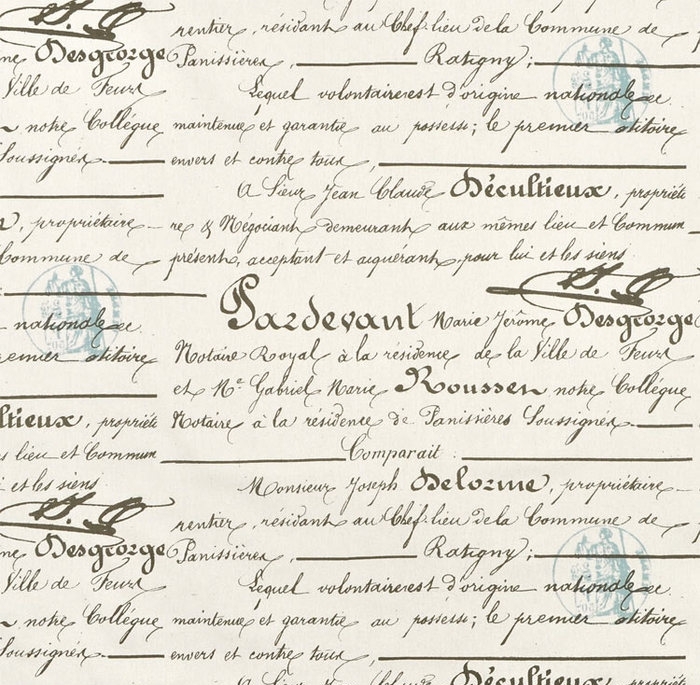 rentier, résidant au Chef-lieu de la Commune de
Desgeorge Panissières, Ratigny;
Ville de Feurs Lequel volontaire est d'origine nationale
notre Collégue maintenue et garantie au possessi; le premier
Soussignés envers et contre tous,
A Sieur Jean Claude Décultieux, propriété
propriétaire re & Négociant demeurant aux mêmes lieu et Commun
Commune de présent, acceptant et aquérant, pour lui et les siens
Pardevant Marie Jerôme Desgeorge
nationale Notaire Royal à la résidence de la Ville de Feurs
premier et Me Gabriel Marie Roussen notre Collégue
propriété Notaire à la résidence de Panissières Soussignés
lieu et Commun Comparait
et les siens Monsieur Joseph Delorme, propriétaire
rentier, résidant au Chef-lieu de la Commune de
Desgeorge Panissières, Ratigny;
Ville de Feurs Lequel volontaire est d'origine nationale
notre Collégue maintenue et garantie au possessi; le premier
Soussignés envers et contre tous,
A Sieur Jean Claude Décultieux, propriété